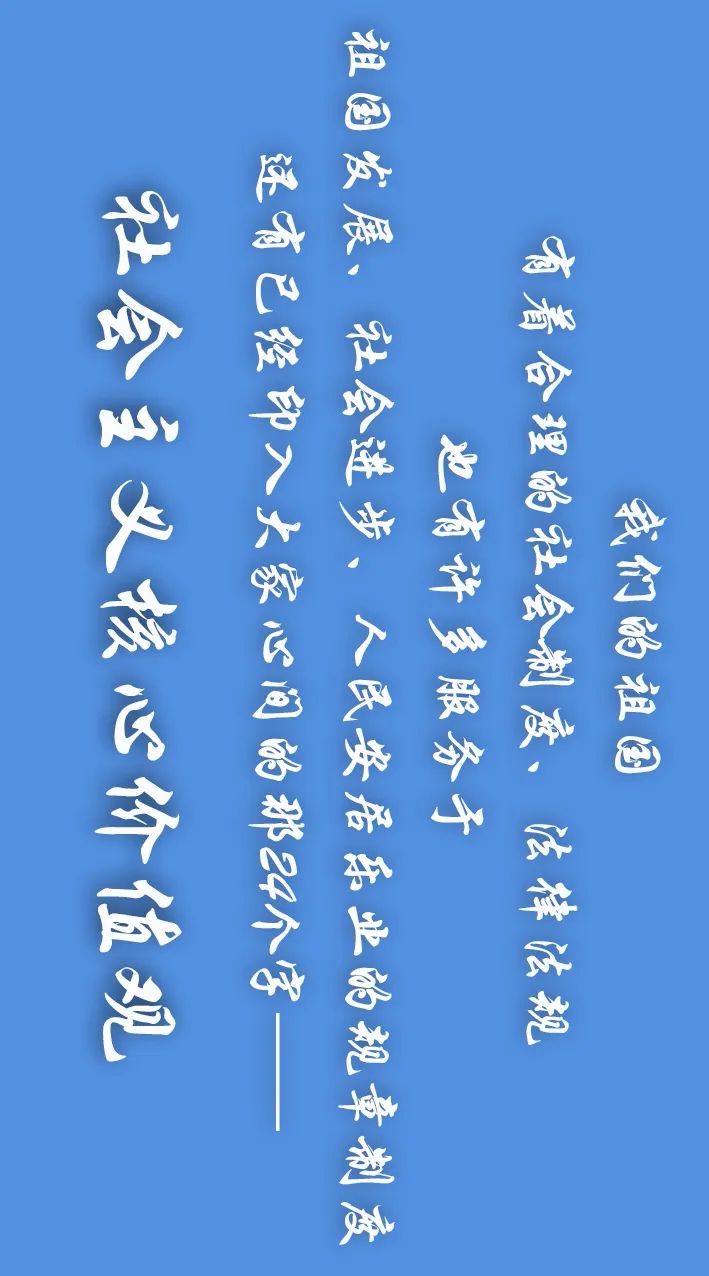 我们的祖国
有着合理的社会制度、法律法规
也有许多服务于
祖国发展、社会进步、人民安居乐业的规章制度
还有已经印入大家心间的那24个字——
社会主义核心价值观